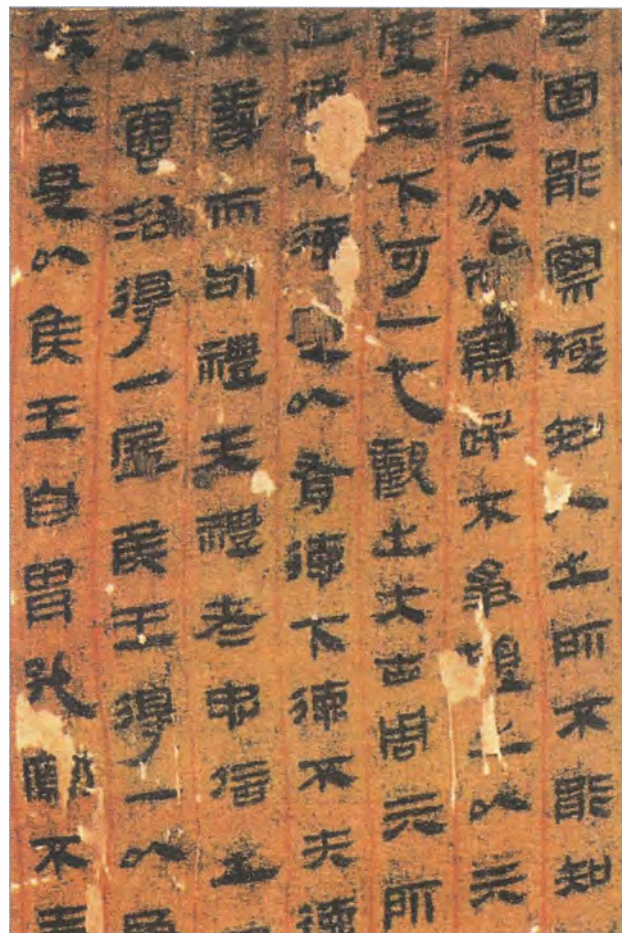 者固能窮極知人之所不能知
以亓必
度天下可一也觀之大古周亓所
上德不德是以有德下德不失德
失義而句禮夫禮者忠信之
一以霝浴得一盈侯王得一以為
夫是以侯王自胃孤寡不